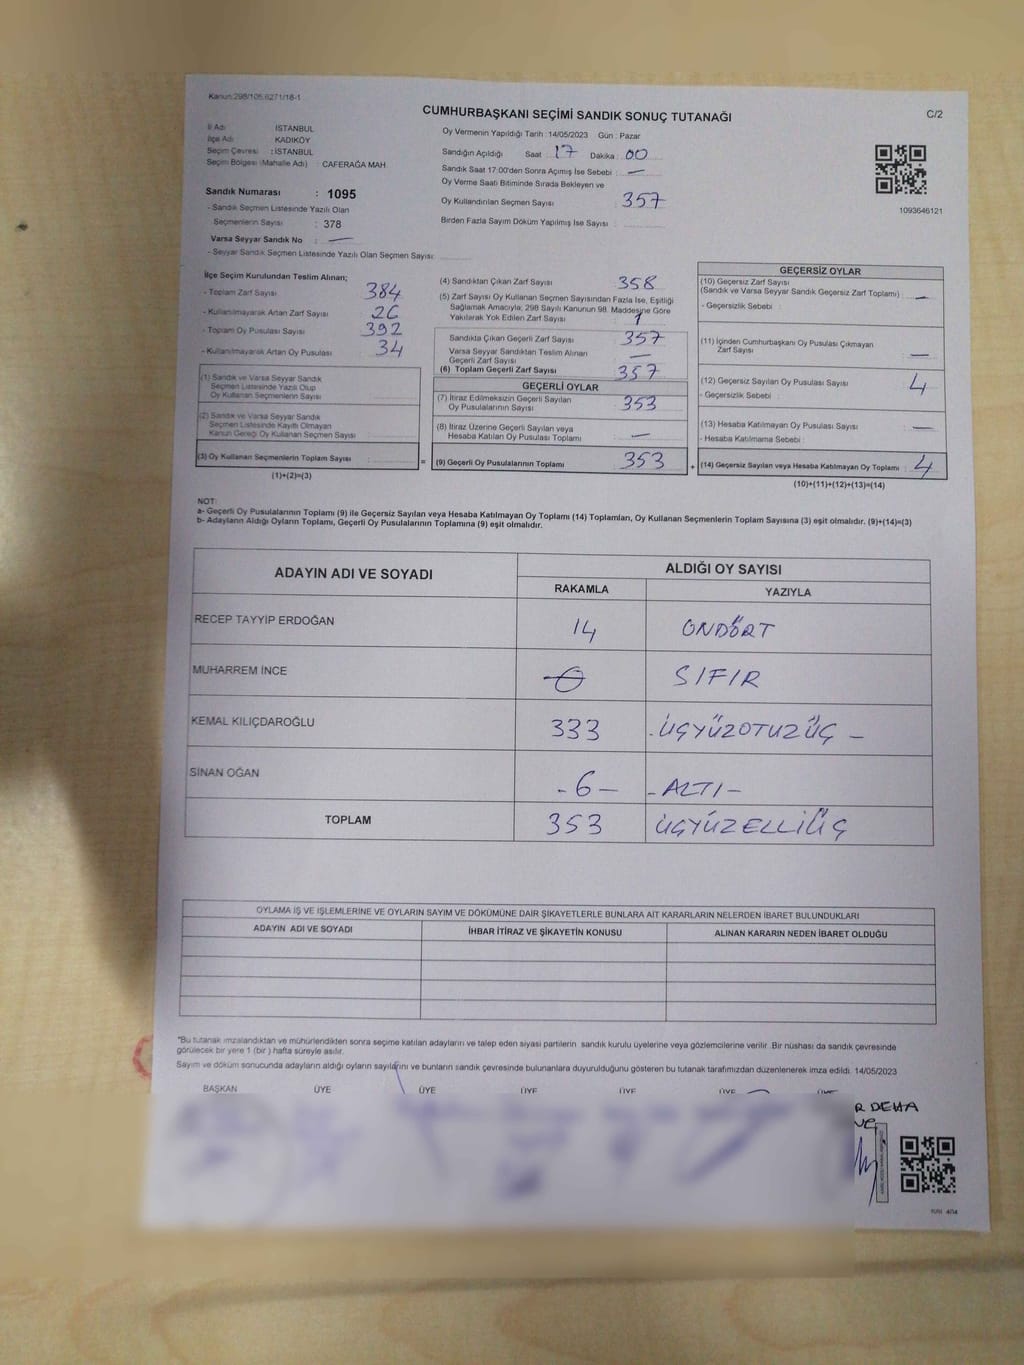 Kanun:298/105,6271/18-1
CUMHURBAŞKANI SEÇİMİ SANDIK SONUÇ TUTANAĞI
C/2
İl Adı : İSTANBUL
İlçe Adı : KADIKÖY
Seçim Çevresi : İSTANBUL
Seçim Bölgesi (Mahalle Adı) : CAFERAĞA MAH.
Oy Vermenin Yapıldığı Tarih : 14/05/2023 Gün : Pazar
Sandığın Açıldığı Saat : 17 Dakika : 00
Sandık Saat 17:00'den Sonra Açımış İse Sebebi : —
Oy Verme Saati Bitiminde Sırada Bekleyen ve
Oy Kullandırılan Seçmen Sayısı : 357
Birden Fazla Sayım Döküm Yapılmış İse Sayısı :
1093646121
Sandık Numarası : 1095
- Sandık Seçmen Listesinde Yazılı Olan
Seçmenlerin Sayısı : 378
Varsa Seyyar Sandık No : —
- Seyyar Sandık Seçmen Listesinde Yazılı Olan Seçmen Sayısı:
İlçe Seçim Kurulundan Teslim Alınan;
- Toplam Zarf Sayısı : 384
- Kullanılmayarak Artan Zarf Sayısı : 26
- Toplam Oy Pusulası Sayısı : 392
- Kullanılmayarak Artan Oy Pusulası : 34
(1) Sandık ve Varsa Seyyar Sandık
Seçmen Listesinde Yazılı Olup
Oy Kullanan Seçmenlerin Sayısı :
(2) Sandık ve Varsa Seyyar Sandık
Seçmen Listesinde Kayıtlı Olmayan
Kanun Gereği Oy Kullanan Seçmen Sayısı :
(3) Oy Kullanan Seçmenlerin Toplam Sayısı :
(1)+(2)=(3)
=
(4) Sandıktan Çıkan Zarf Sayısı : 358
(5) Zarf Sayısı Oy Kullanan Seçmen Sayısından Fazla İse, Eşitliği
Sağlamak Amacıyla; 298 Sayılı Kanunun 98. Maddesine Göre
Yakılarak Yok Edilen Zarf Sayısı : 1
Sandıkta Çıkan Geçerli Zarf Sayısı : 357
Varsa Seyyar Sandıktan Teslim Alınan
Geçerli Zarf Sayısı : —
(6) Toplam Geçerli Zarf Sayısı : 357
GEÇERLİ OYLAR
(7) İtiraz Edilmeksizin Geçerli Sayılan
Oy Pusulalarının Sayısı : 353
(8) İtiraz Üzerine Geçerli Sayılan veya
Hesaba Katılan Oy Pusulası Toplamı : —
(9) Geçerli Oy Pusulalarının Toplamı : 353
+
GEÇERSİZ OYLAR
(10) Geçersiz Zarf Sayısı
(Sandık ve Varsa Seyyar Sandık Geçersiz Zarf Toplamı) : —
- Geçersizlik Sebebi :
(11) İçinden Cumhurbaşkanı Oy Pusulası Çıkmayan
Zarf Sayısı : —
(12) Geçersiz Sayılan Oy Pusulası Sayısı : 4
- Geçersizlik Sebebi :
(13) Hesaba Katılmayan Oy Pusulası Sayısı : —
- Hesaba Katılmama Sebebi :
(14) Geçersiz Sayılan veya Hesaba Katılmayan Oy Toplamı : 4
(10)+(11)+(12)+(13)=(14)
NOT:
a- Geçerli Oy Pusulalarının Toplamı (9) ile Geçersiz Sayılan veya Hesaba Katılmayan Oy Toplamı (14) Toplamları, Oy Kullanan Seçmenlerin Toplam Sayısına (3) eşit olmalıdır. (9)+(14)=(3)
b- Adayların Aldığı Oyların Toplamı, Geçerli Oy Pusulalarının Toplamına (9) eşit olmalıdır.
ADAYIN ADI VE SOYADI
ALDIĞI OY SAYISI
RAKAMLA YAZIYLA
RECEP TAYYİP ERDOĞAN 14 ONDÖRT
MUHARREM İNCE 0 SIFIR
KEMAL KILIÇDAROĞLU 333 ÜÇYÜZOTUZÜÇ —
SİNAN OĞAN - 6 - - ALTI -
TOPLAM 353 ÜÇYÜZELLİÜÇ
OYLAMA İŞ VE İŞLEMLERİNE VE OYLARIN SAYIM VE DÖKÜMÜNE DAİR ŞİKAYETLERLE BUNLARA AİT KARARLARIN NELERDEN İBARET BULUNDUKLARI
ADAYIN ADI VE SOYADI İHBAR İTİRAZ VE ŞİKAYETİN KONUSU ALINAN KARARIN NEDEN İBARET OLDUĞU
"Bu tutanak imzalandıktan ve mühürlendikten sonra seçime katılan adayların ve talep eden siyasi partilerin sandık kurulu üyelerine veya gözlemcilerine verilir. Bir nüshası da sandık çevresinde
görülecek bir yere 1 (bir ) hafta süreyle asılır.
Sayım ve döküm sonucunda adayların aldığı oyların sayılarını ve bunların sandık çevresinde bulunanlara duyurulduğunu gösteren bu tutanak tarafımızdan düzenlenerek imza edildi. 14/05/2023
BAŞKAN ÜYE ÜYE ÜYE ÜYE ÜYE ÜYE
R DEHA